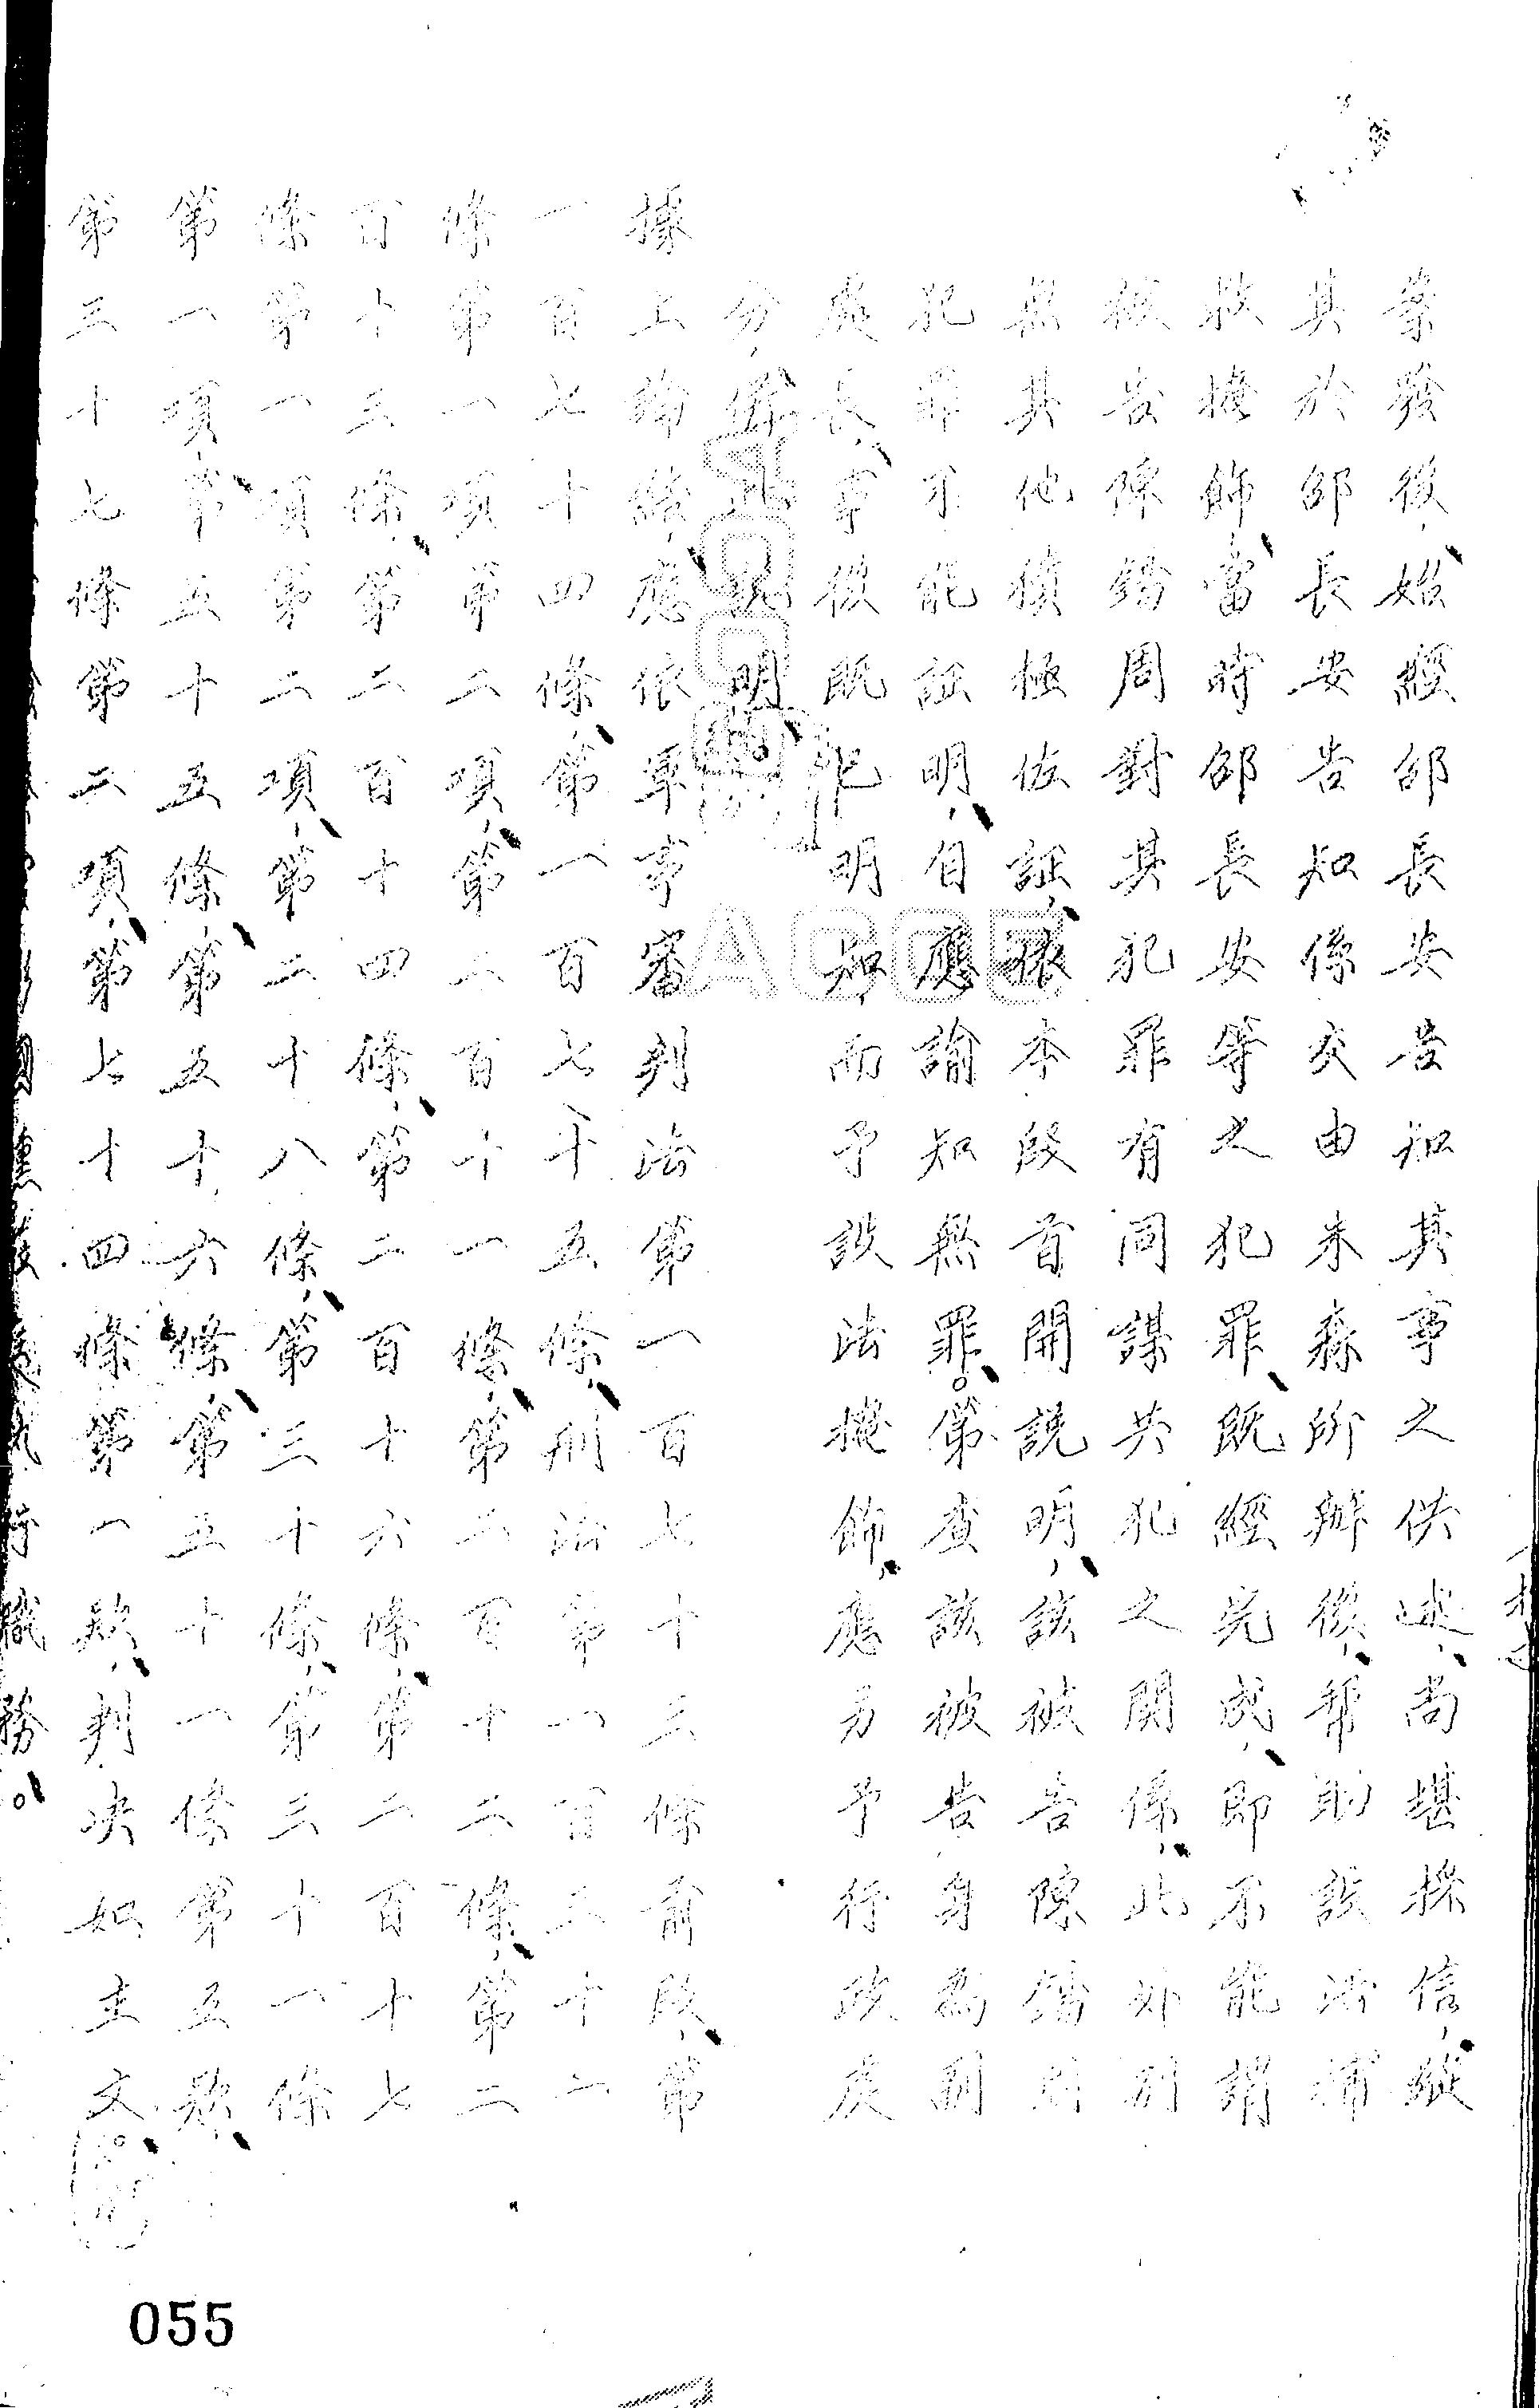 案發後、始經邵長安告知其事之供述、尚堪採信、縱
其於邵長安告知係交由朱森所辦後、幫助設法補
救掩飾、當時邵長安等之犯罪、既經完成、即不能謂
被告陳鐕周對其犯罪有同謀共犯之関係、此外別
無其他積極佐証、據本段首開説明、該被告陳鐕周
犯罪不能証明、自應諭知無罪。第查該被告身為副
處長、事後既已明知而予設法掩飾、應另予行政處
分、併 明
據上論結、應依軍事審判法第一百七十三條前段、第
一百七十四條、第一百七十五條、刑法第一百三十一
條第一項第二項、第二百十一條、第二百十二條、第二
百十三條、第二百十四條、第二百十六條、第二百十七
條第一項第二項、第二十八條、第三十條、第三十一條
第一項、第五十五條、第五十六條、第五十一條第五款、
第三十七條第二項、第七十四條第一款、判決如主文。
職務。
ACCE
055